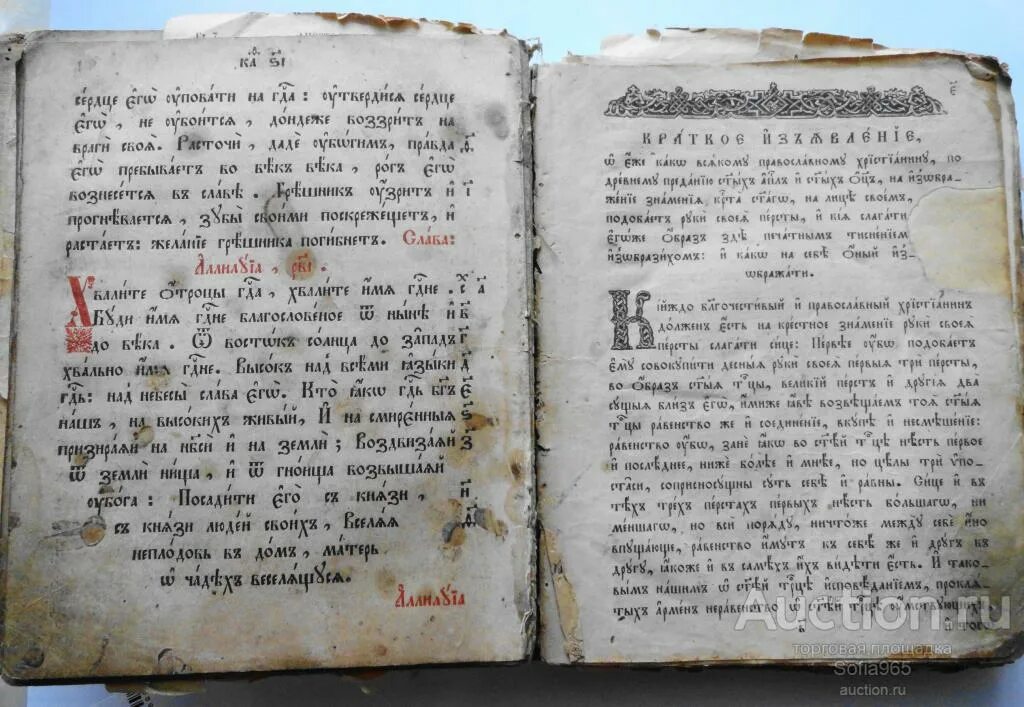 ка ѕ҃і
се́рдце є҆гѡ̀ ᲂу҆пова́ти на гдⷭ҇а : ᲂу҆тверди́сѧ се́рдце
є҆гѡ̀ , не ᲂу҆бои́тсѧ , до́ндеже воззри́тъ на
врагѝ своѧ̀ . Расточѝ , дадѐ ᲂу҆бѡ́гимъ , пра́вда
є҆гѡ̀ пребыва́етъ во вѣ́къ вѣ́ка , ро́гъ є҆гѡ̀
вознесе́тсѧ въ сла́вѣ . Грѣ́шникъ ᲂу҆́зритъ и҆
прогнѣ́ваетсѧ , зᲂубы̀ свои́ми поскреже́щетъ , и҆
раста́етъ : жела́нїе грѣ́шника поги́бнетъ . Сла́ва :
А҆ллилᲂу́їа , рв҃і .
Хвали́те ѻ҆́троцы гдⷭ҇а , хвали́те и҆́мѧ гдⷭ҇не . а҃
Бᲂу́ди и҆́мѧ гдⷭ҇не благослове́ное ѿ ны́нѣ и҆ в҃
до вѣ́ка . Ѿ восто́къ со́лнца до за́падъ г҃
хва́льно и҆́мѧ гдⷭ҇не . Высо́къ над̾ всѣ́ми ꙗ҆зы́ки д҃
гдⷭ҇ь : над̾ небесы̀ сла́ва є҆гѡ̀ . Кто̀ ꙗ҆́кѡ гдⷭ҇ь бг҃ъ є҃
на́шъ , на высо́кихъ живы́й , И҆ на смире́нныѧ ѕ҃
призира́ѧй на нб҃сѝ и҆ на землѝ ; Воздвиза́ѧй з҃
ѿ землѝ ни́ща , и҆ ѿ гно́ища возвыша́ѧй
ᲂу҆бо́га : Посади́ти є҆го̀ съ кнѧ́зи , и҃
съ кнѧ́зи люде́й свои́хъ , Вселѧ́ѧ ѳ҃
непло́довь въ до́мъ , ма́терь
ѡ҆ ча́дѣхъ веселѧ́щᲂусѧ .
А҆ллилᲂу́їа
є҃
КРА́ТКОЕ И҆З̾ѦВЛЕ́НЇЕ ,
ѡ҆ є҆́же ка́кѡ всѧ́комᲂу правосла́вномᲂу хрⷭ҇тїа́нинᲂу , по
дре́внемᲂу преда́нїю ст҃ы́хъ а҆пⷭ҇лъ и҆ ст҃ы́хъ ѻ҆ц҃ъ , на и҆з̾ѡбра-
же́нїе зна́менїѧ крⷭ҇та̀ ст҃а́гѡ , на лицѐ свое́мъ ,
подоба́етъ рᲂукѝ своеѧ̀ пе́рсты , и҆ кі́ѧ слага́ти
є҆гѡ́же ѻ҆́бразъ здѣ̀ печа́тнымъ тисне́нїемъ
и҆з̾ѡбрази́хомъ : и҆ ка́кѡ на себѣ̀ ѻ҆́ный и҆з̾-
ѡбража́ти .
Кі́йждо благочести́вый и҆ правосла́вный хрⷭ҇тїа́нинъ
до́лженъ є҆́сть на кре́стное зна́менїе рᲂукѝ своеѧ̀
пе́рсты слага́ти си́це : Пе́рвѣе ᲂу҆́бѡ , подоба́етъ
є҆мᲂу̀ совокᲂупи́ти десны́ѧ рᲂукѝ своеѧ̀ пе́рвыѧ трѝ пе́рсты ,
во ѻ҆́бразъ ст҃ы́ѧ трⷪ҇цы , вели́кїй пе́рстъ и҆ дрᲂугі́ѧ два̀
сᲂу́щыѧ бли́зъ є҆гѡ̀ , и҆́миже ꙗ҆́вѣ возвѣща́емъ тоѧ̀ ст҃ы́ѧ
трⷪ҇цы ра́венство же и҆ соедине́нїе , вкᲂу́пѣ и҆ несмѣше́нїе :
ра́венство ᲂу҆́бѡ , занѐ ꙗ҆́кѡ во ст҃ѣ́й трⷪ҇цѣ нѣ́сть пе́рвое
и҆ послѣ́днее , нижѐ бо́лѣе и҆ мнѣ́е , но цѣ́лы трѝ ѵ҆по-
ста̑си , соприсносᲂу́щны сᲂу́ть себѣ̀ и҆ ра́вны . Си́це и҆ въ
тѣ́хъ тре́хъ перста́хъ пе́рвыхъ нѣ́сть бо́льшагѡ , ни
ме́ншагѡ , но всѝ порѧ́дᲂу , ничто́же междᲂу̀ себѐ и҆́но
впᲂуща́юще , ра́венство и҆́мᲂутъ къ себѣ́ же и҆ дрᲂу́гъ въ
дрᲂу́гᲂу , ꙗ҆́коже и҆ въ самѣ́хъ и҆́хъ ви́дѣти є҆́сть . И҆ тако-
вы́мъ на́шимъ ѡ҆ ст҃ѣ́й трⷪ҇цѣ и҆сповѣ́данїемъ , проклѧ́-
тыхъ а҆рме́нъ нера́венство ѡ҆ ст҃ѣ́й трⷪ҇цѣ ᲂу҆́мствᲂующихъ ,
Б и҆ того̀
Auction.ru
торговая площадка
Sofia965
auction.ru